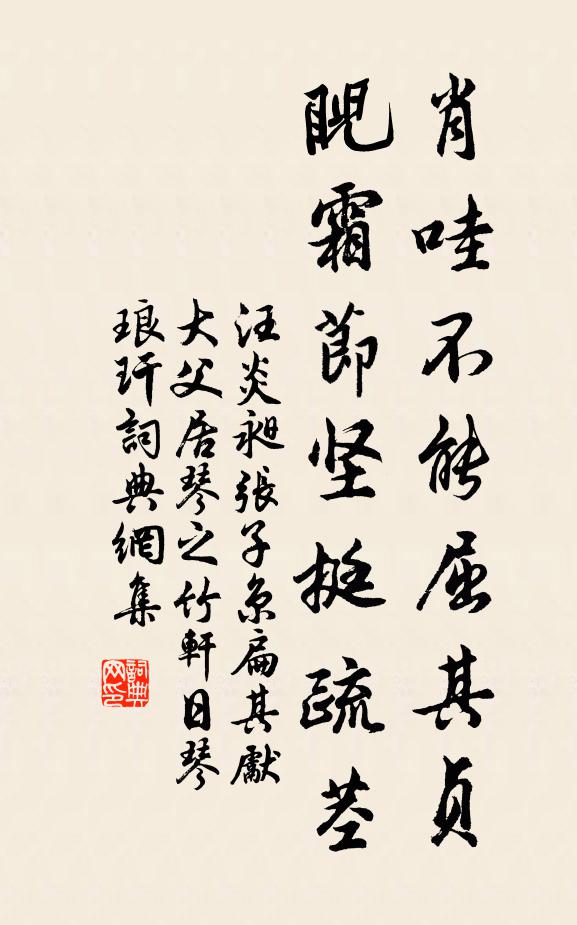 肖哇不能屈其贞
睨霜節坚挺疏茎
汪炎昶張子京扁其獻
大父居琴之竹軒日琴
琅玕詞典網集
詞典网印